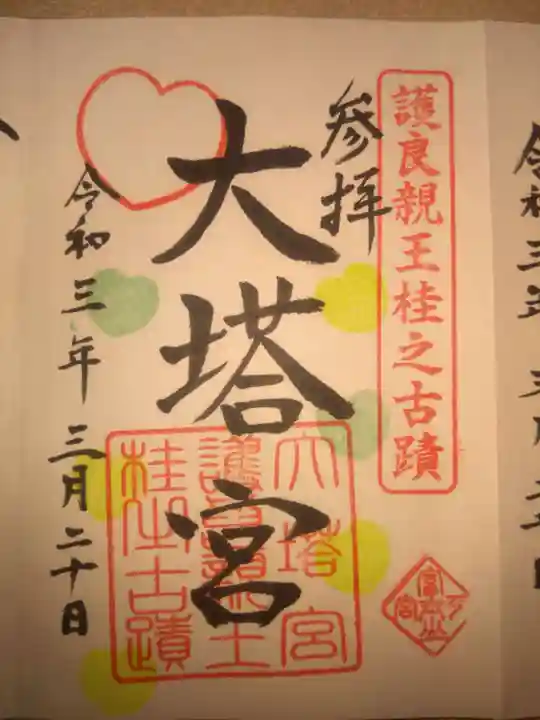 護良親王桂之古蹟
参拝
大塔宮
令和三年三月二十日
大塔宮
護良親王
桂之古蹟